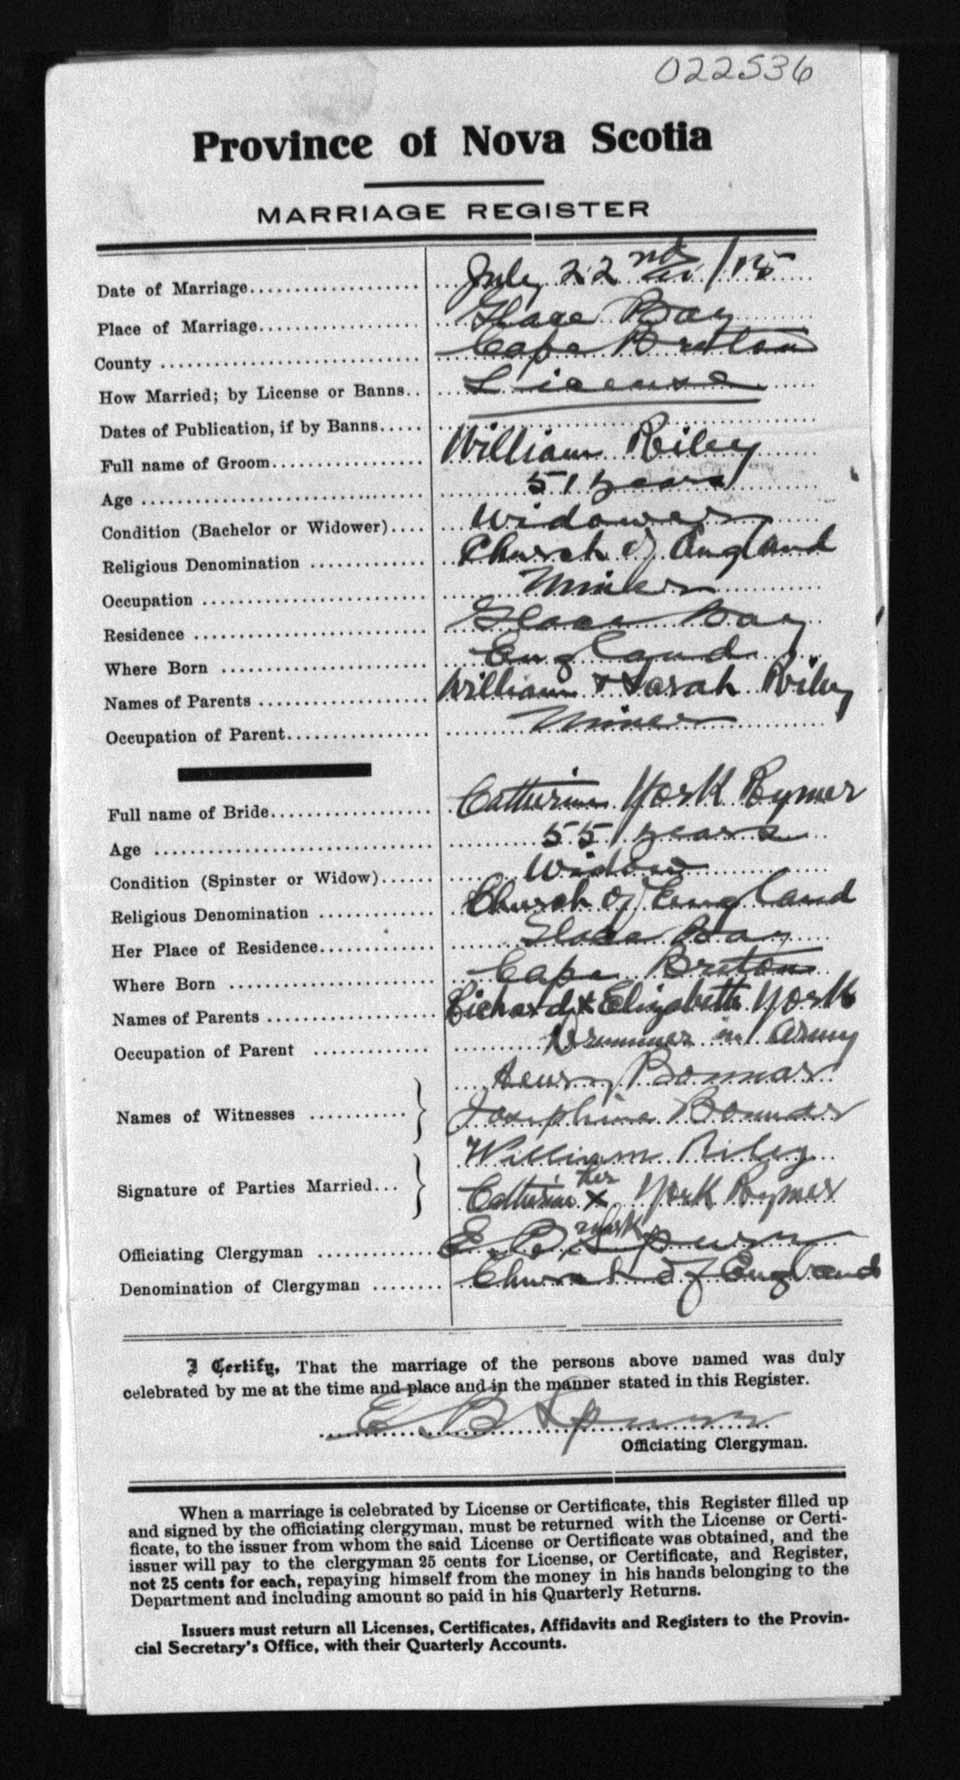 022536
Province of Nova Scotia
MARRIAGE REGISTER
Date of Marriage................... July 22nd /15
Place of Marriage.................. Glace Bay
County ............................. Cape Breton
How Married; by License or Banns.. License
Dates of Publication, if by Banns.....
Full name of Groom................. William Riley
Age ................................ 51 years
Condition (Bachelor or Widower).... Widower
Religious Denomination ............ Church of England
Occupation ......................... Miner
Residence .......................... Glace Bay
Where Born ........................ England
Names of Parents ................... William & Sarah Riley
Occupation of Parent................ Miner
Full name of Bride.................. Catherine York Rymer
Age ................................ 55 years
Condition (Spinster or Widow)...... Widow
Religious Denomination ............ Church of England
Her Place of Residence............. Glace Bay
Where Born ........................ Cape Breton
Names of Parents .................. Richard & Elizabeth York
Occupation of Parent .............. Drummer in Army
Henry Bonnar
Names of Witnesses ........... Josephine Bonnar
William Riley
Signature of Parties Married... Catherine her X mark York Rymer
Officiating Clergyman ............. E. B. Spurr
Denomination of Clergyman ........ Church of England
I Certify, That the marriage of the persons above named was duly
celebrated by me at the time and place and in the manner stated in this Register.
E B Spurr
Officiating Clergyman.
When a marriage is celebrated by License or Certificate, this Register filled up
and signed by the officiating clergyman, must be returned with the License or Certi-
ficate, to the issuer from whom the said License or Certificate was obtained, and the
issuer will pay to the clergyman 25 cents for License, or Certificate, and Register,
not 25 cents for each, repaying himself from the money in his hands belonging to the
Department and including amount so paid in his Quarterly Returns.
Issuers must return all Licenses, Certificates, Affidavits and Registers to the Provin-
cial Secretary's Office, with their Quarterly Accounts.